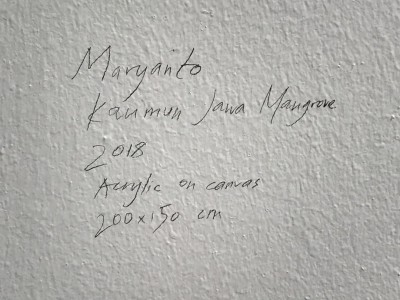 Maryanto
Kaumun Jawa Mangrove
2018
Acrylic on canvas
200x150 cm